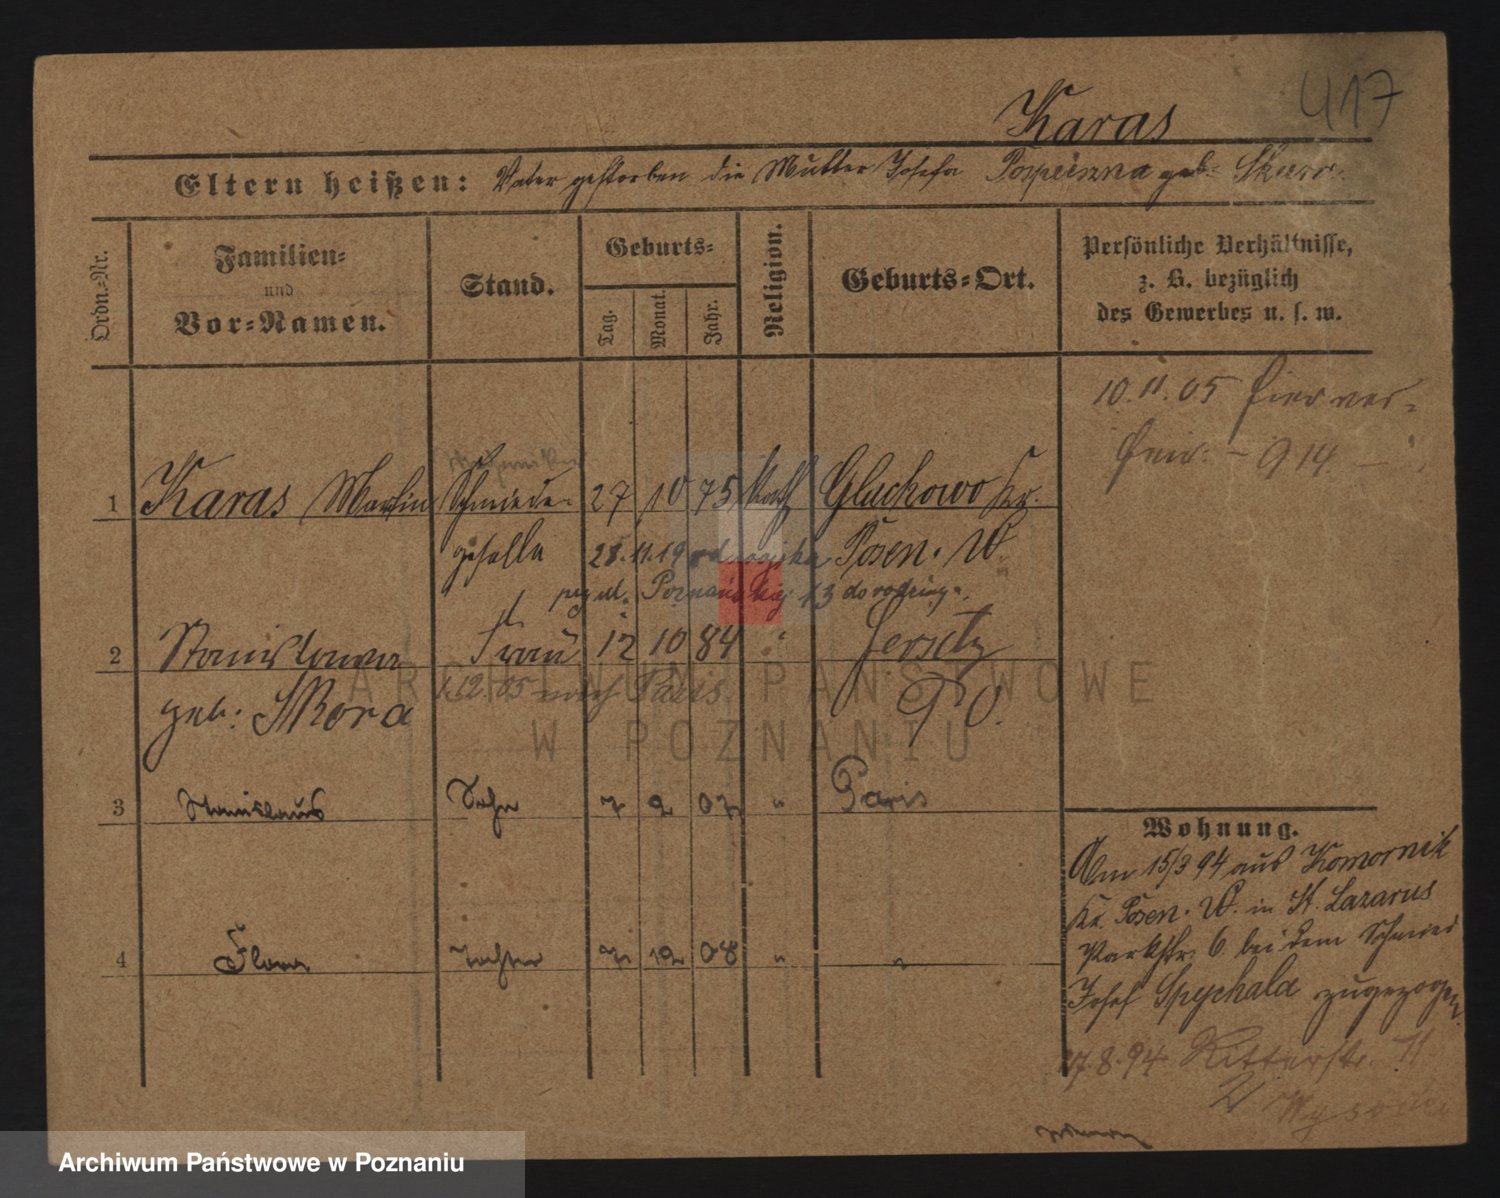 417
Karas
Eltern heißen: Vater gestorben die Mutter Josefa Pospieszna geb. Skur
Ordn.-Nr.
Familien- und Vor-Namen.
Stand.
Geburts-
Tag.
Monat.
Jahr.
Religion.
Geburts-Ort.
Persönliche Verhältnisse,
z. B. bezüglich
des Gewerbes u. s. w.
10.11.05 hier ver-
heir. - 914 -
1 Karas Martin Schmiede- 27 10 75 Kath Gluchowo Kr.
geselle 28.11.19 Posen. W.
Poznańskiej 13 do rodziny.
2 Stanislawa Frau 12 10 84 " Jersitz
geb: Skora 1.12.05 nach Paris PO.
3 Stanislaus Sohn 7 2 07 " Paris
4 Flora Tochter 7 12 08 " "
Wohnung.
Am 15/3 94 aus Komornik
Kr. Posen. W. in St. Lazarus
Parkstr. 6 bei dem Schmied
Josef Spychala zugezogen.
27.8.94 Ritterstr. 11
ARCHIWUM PAŃSTWOWE
W POZNANIU
Archiwum Państwowe w Poznaniu